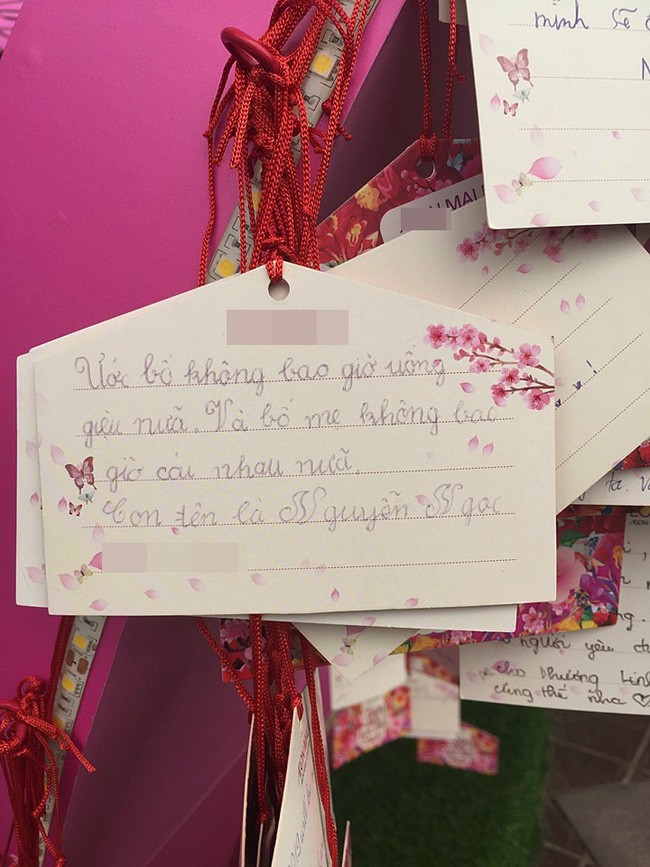 mình sẽ
N MALL
Ước bố không bao giờ uống
giệu nuã. Và bố mẹ không bao
giờ cáu nhau nuã.
Con tên là Nguyễn Ngọc
ta. Và
người yêu
cho Phương Linh
cũng thế nha